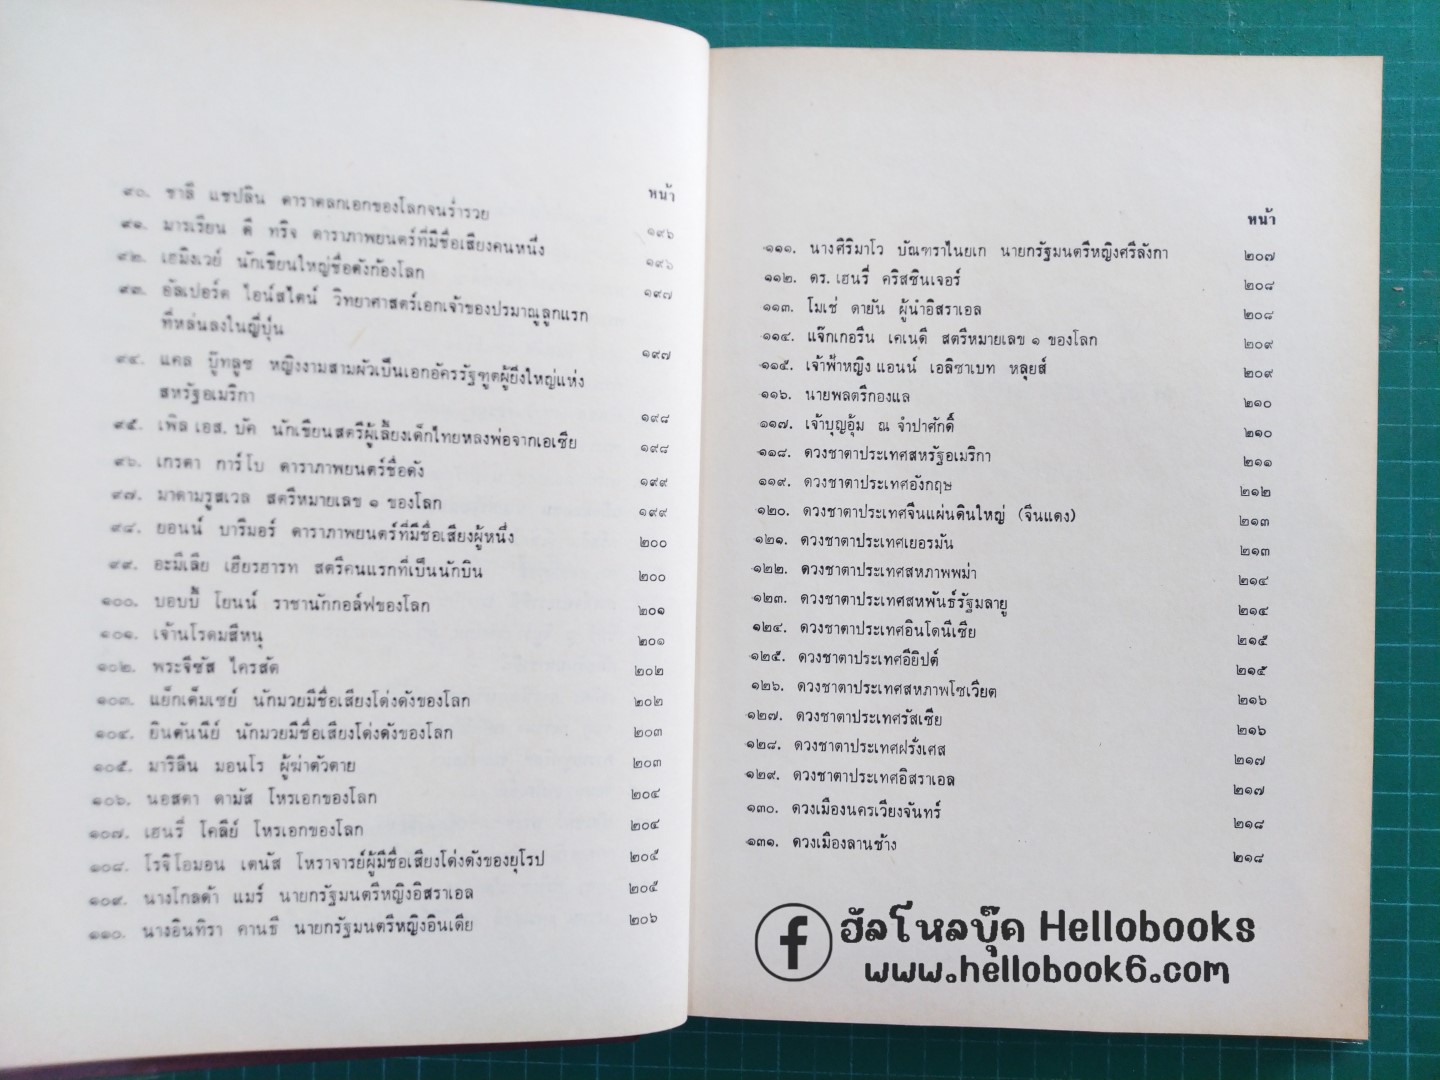 หน้า
๙๐. ชาลี แชปลิน ดาราตลกเอกของโลกจนร่ำรวย ๑๙๖
๙๑. มารเรียน ดี ทรีจ ดาราภาพยนตร์ที่มีชื่อเสียงคนหนึ่ง ๑๙๖
๙๒. เฮมิงเวย์ นักเขียนใหญ่ชื่อดังก้องโลก ๑๙๗
๙๓. อัลเปอร์ต ไอน์สไตน์ วิทยาศาสตร์เอกเจ้าของปรมาณูลูกแรก
ที่หล่นลงในญี่ปุ่น ๑๙๗
๙๔. แคล บู๊ทลูซ หญิงงามสามผัวเป็นเอกอัครรัฐฑูตผู้ยิ่งใหญ่แห่ง
สหรัฐอเมริกา ๑๙๘
๙๕. เพิล เอส. บัค นักเขียนสตรีผู้เลี้ยงเด็กไทยหลงพ่อจากเอเซีย ๑๙๘
๙๖. เกรตา การ์โบ ดาราภาพยนตร์ชื่อดัง ๑๙๙
๙๗. มาดามรูสเวล สตรีหมายเลข ๑ ของโลก ๑๙๙
๙๘. ยอนน์ บารีมอร์ ดาราภาพยนตร์ที่มีชื่อเสียงผู้หนึ่ง ๒๐๐
๙๙. อะมีเลีย เฮียรฮารท สตรีคนแรกที่เป็นนักบิน ๒๐๐
๑๐๐. บอบบี้ โยนน์ ราชานักกอล์ฟของโลก ๒๐๑
๑๐๑. เจ้านโรดมสีหนุ ๒๐๑
๑๐๒. พระจีซัส ไครสต์ ๒๐๒
๑๐๓. แย็กเด็มเซย์ นักมวยมีชื่อเสียงโด่งดังของโลก ๒๐๒
๑๐๔. ยีนตันนีย์ นักมวยมีชื่อเสียงโด่งดังของโลก ๒๐๓
๑๐๕. มาริลีน มอนโร ผู้ฆ่าตัวตาย ๒๐๓
๑๐๖. นอสตา ดามัส โหรเอกของโลก ๒๐๔
๑๐๗. เฮนรี่ โคลีย์ โหรเอกของโลก ๒๐๔
๑๐๘. โรจิโอมอน เดนัส โหราจารย์ผู้มีชื่อเสียงโด่งดังของยุโรป ๒๐๕
๑๐๙. นางโกลด้า แมร์ นายกรัฐมนตรีหญิงอิสราเอล ๒๐๕
๑๑๐. นางอินทิรา คานธี นายกรัฐมนตรีหญิงอินเดีย ๒๐๖
หน้า
๑๑๑. นางศิริมาโว บัณฑราไนยเก นายกรัฐมนตรีหญิงศรีลังกา ๒๐๗
๑๑๒. ดร. เฮนรี่ คริสซินเจอร์ ๒๐๘
๑๑๓. โมเช่ ดายัน ผู้นำอิสราเอล ๒๐๘
๑๑๔. แจ๊กเกอรีน เคเนดี สตรีหมายเลข ๑ ของโลก ๒๐๙
๑๑๕. เจ้าฟ้าหญิง แอนน์ เอลิซาเบท หลุยส์ ๒๐๙
๑๑๖. นายพลตรีกองแล ๒๑๐
๑๑๗. เจ้าบุญอุ้ม ณ จำปาศักดิ์ ๒๑๐
๑๑๘. ดวงชาตาประเทศสหรัฐอเมริกา ๒๑๑
๑๑๙. ดวงชาตาประเทศอังกฤษ ๒๑๒
๑๒๐. ดวงชาตาประเทศจีนแผ่นดินใหญ่ (จีนแดง) ๒๑๓
๑๒๑. ดวงชาตาประเทศเยอรมัน ๒๑๓
๑๒๒. ดวงชาตาประเทศสหภาพพม่า ๒๑๔
๑๒๓. ดวงชาตาประเทศสหพันธ์รัฐมลายู ๒๑๔
๑๒๔. ดวงชาตาประเทศอินโดนีเซีย ๒๑๕
๑๒๕. ดวงชาตาประเทศอียิปต์ ๒๑๕
๑๒๖. ดวงชาตาประเทศสหภาพโซเวียต ๒๑๖
๑๒๗. ดวงชาตาประเทศรัสเซีย ๒๑๖
๑๒๘. ดวงชาตาประเทศฝรั่งเศส ๒๑๗
๑๒๙. ดวงชาตาประเทศอิสราเอล ๒๑๗
๑๓๐. ดวงเมืองนครเวียงจันทร์ ๒๑๘
๑๓๑. ดวงเมืองลานช้าง ๒๑๘
ฮัลโหลบุ๊ค Hellobooks
www.hellobook6.com